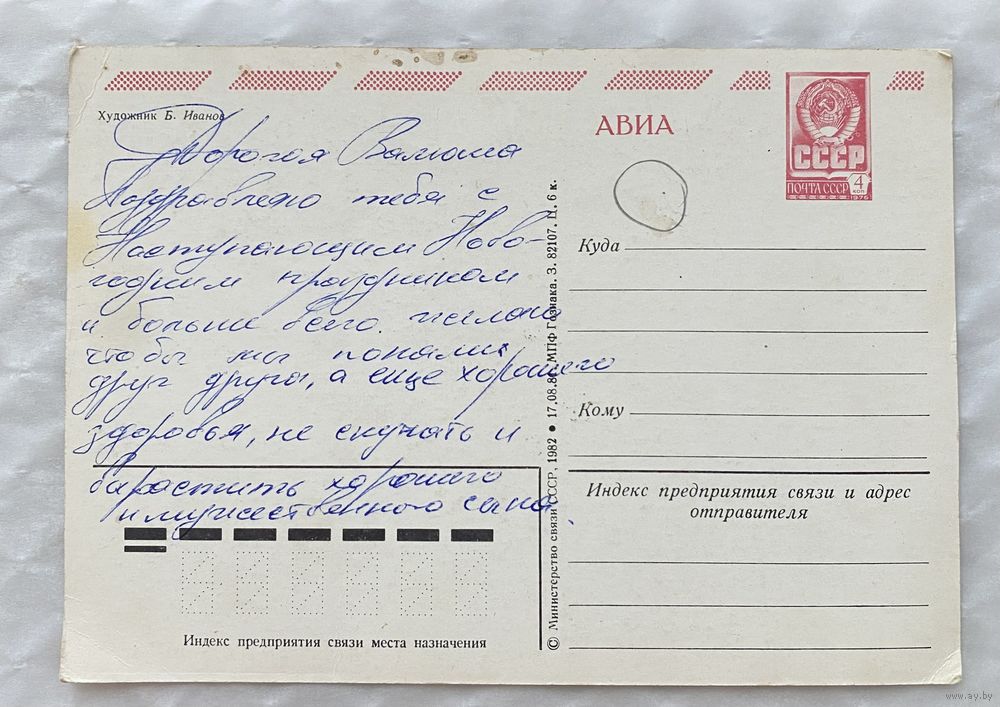 Художник Б. Иванов
АВИА
СССР
ПОЧТА СССР 4 коп
1976
Дорогая Валюша
Поздравляю тебя с
Наступающим Ново-
годним праздником
и больше всего желаю
чтобы мы поняли
друг друга, а еще хорошего
здоровья, не скучать и
вырастить хорошего
и мужественного сына.
Куда
Кому
Индекс предприятия связи и адрес
отправителя
Индекс предприятия связи места назначения
© Министерство связи СССР, 1982 • 17.08.8 МПФ Гознака. З. 82107. Ц. 6 к.
www.ay.by